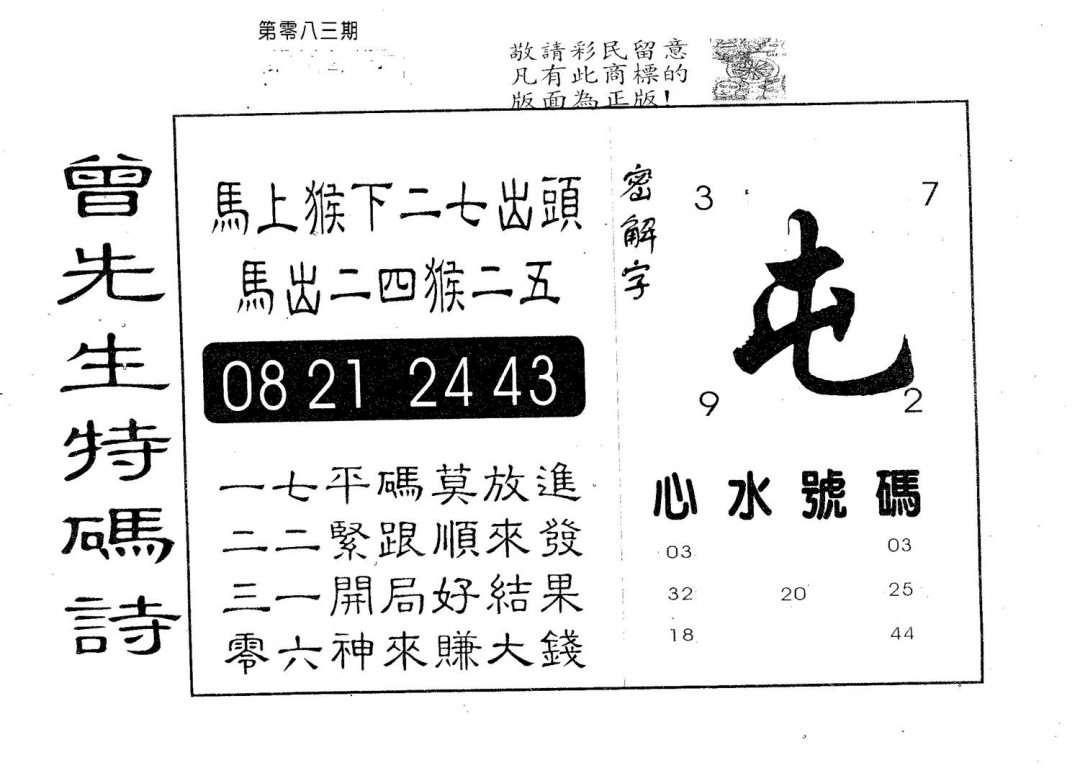 第零八三期
敬請彩民留意
凡有此商標的
版面為正版!
曾先生特碼詩
馬上猴下二七出頭
馬出二四猴二五
08 21 24 43
一七平碼莫放進
二二緊跟順來發
三一開局好結果
零六神來賺大錢
密解字
3 7
屯
9 2
心水號碼
03 03
32 20 25
18 44